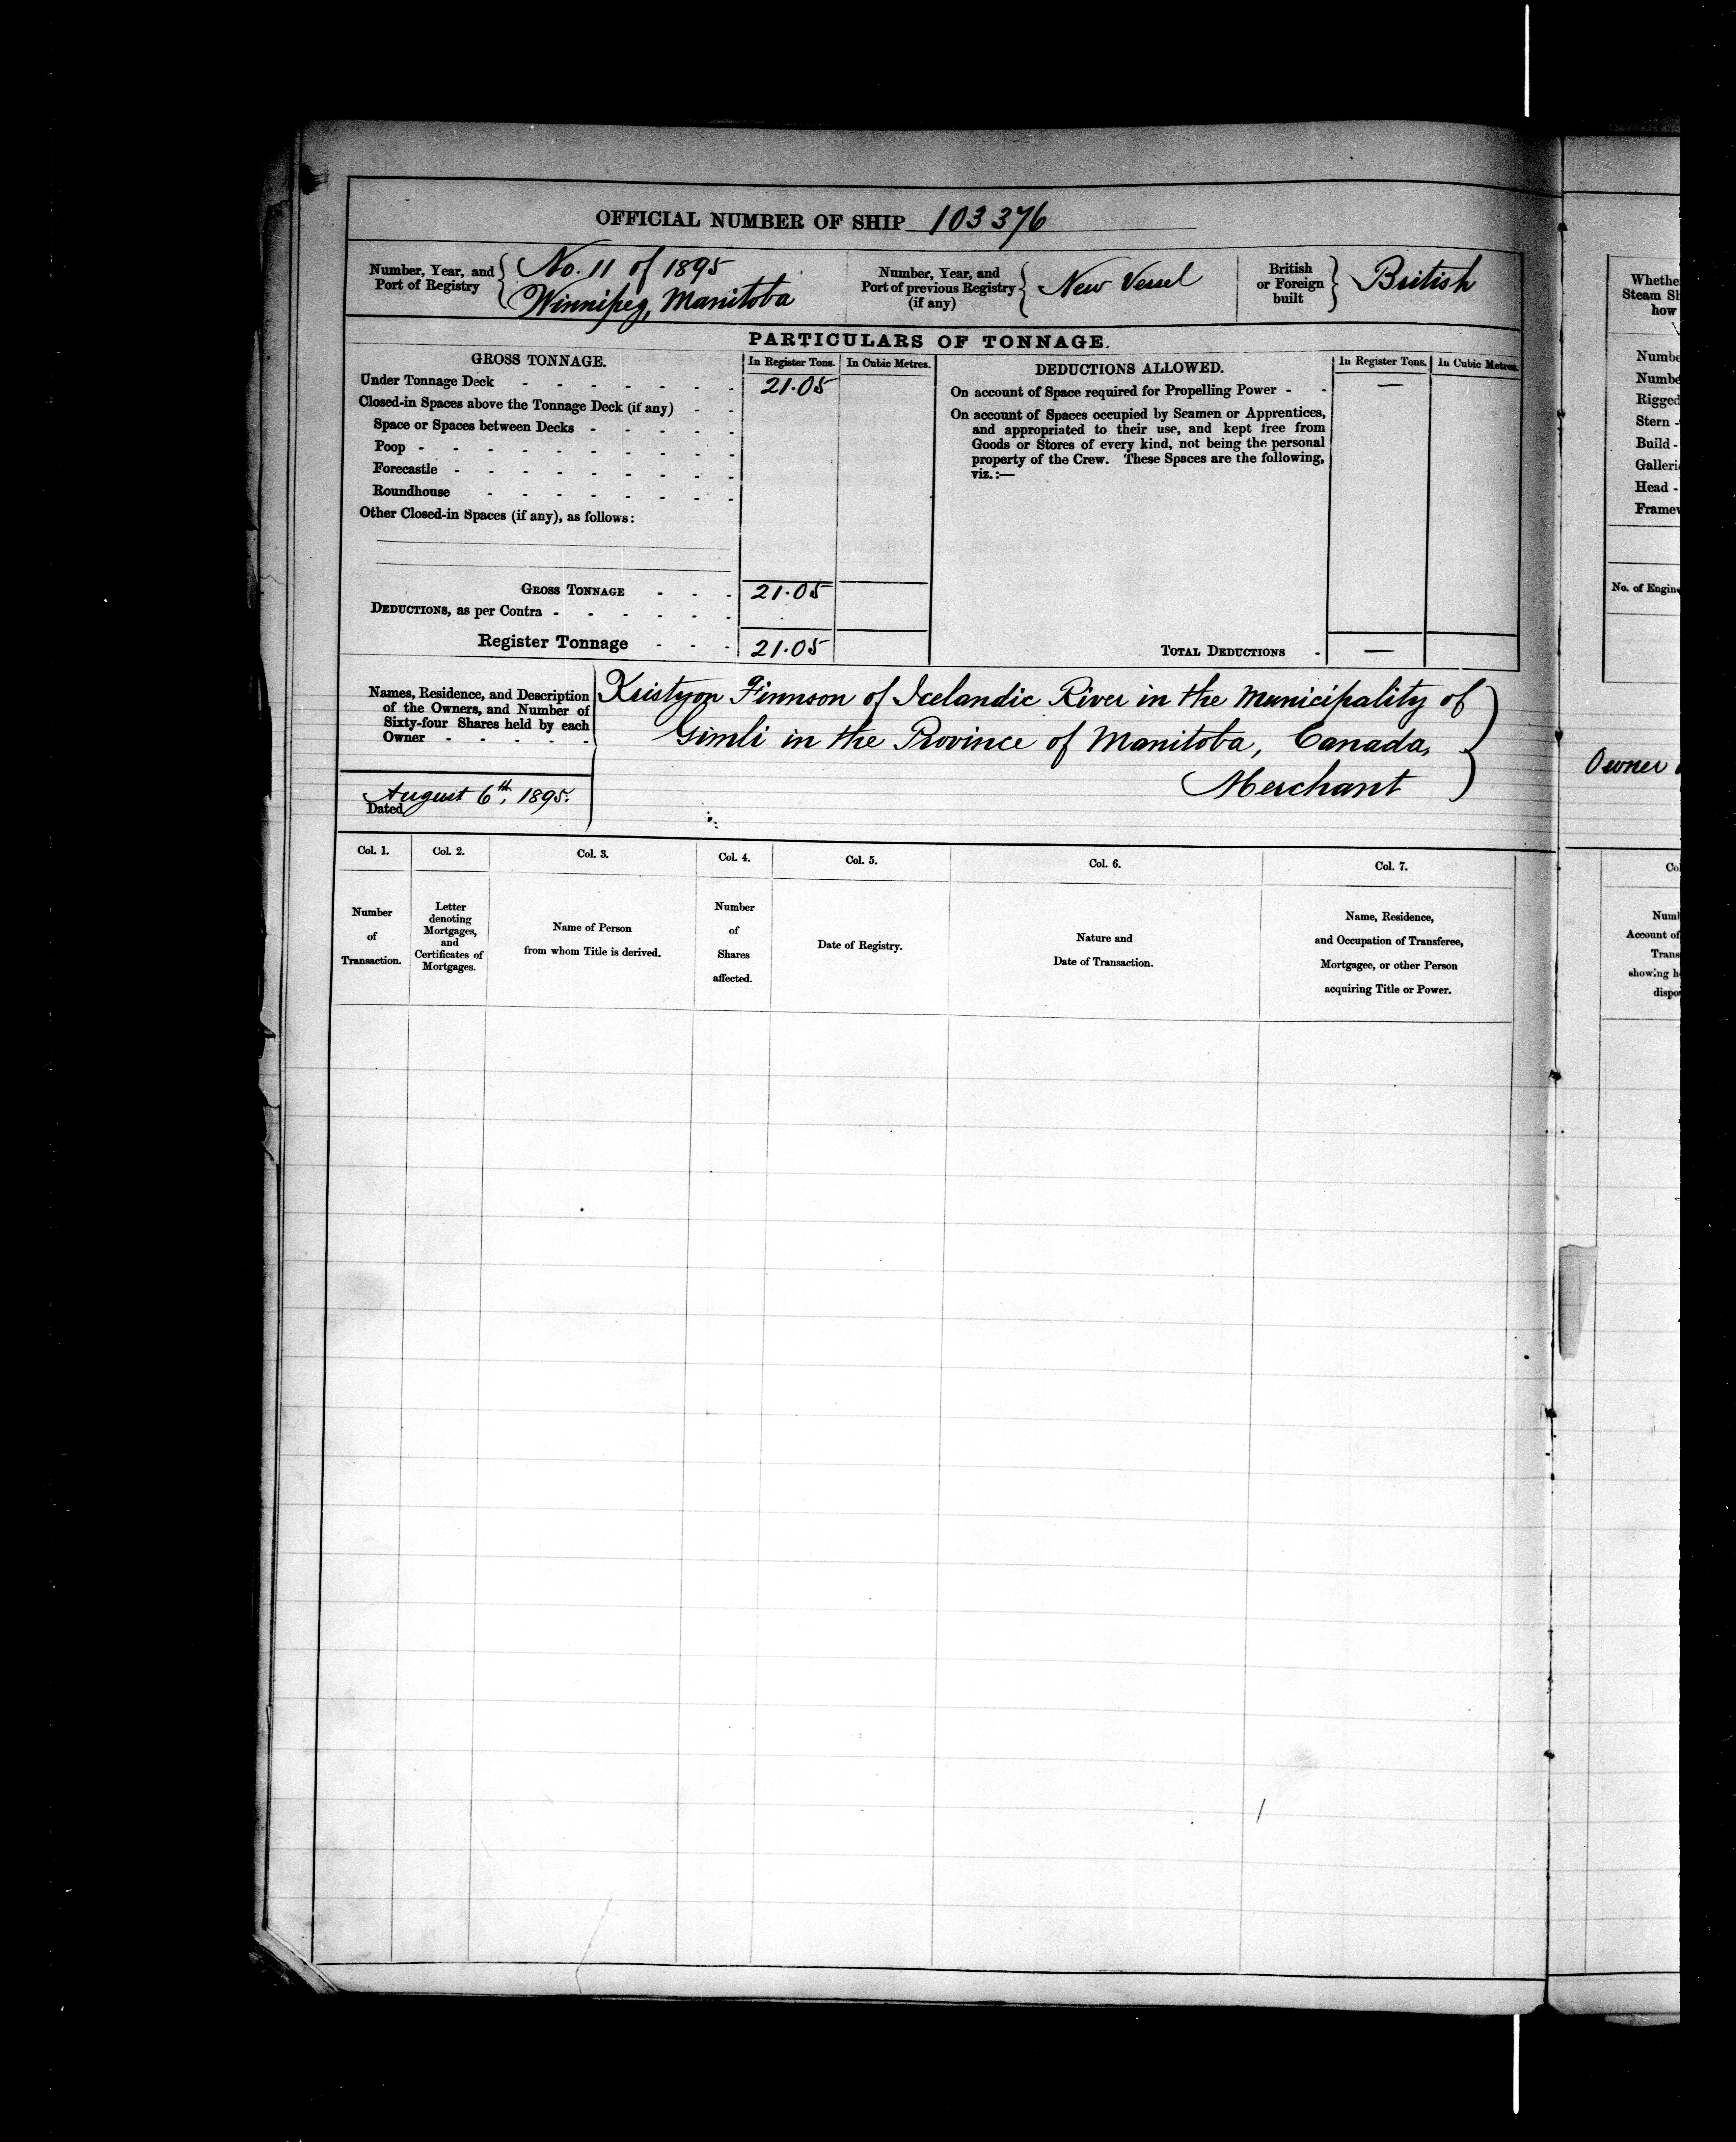 OFFICIAL NUMBER OF SHIP 103376
Number, Year, and Port of Registry { No. 11 of 1895
Winnipeg, Manitoba
Number, Year, and
Port of previous Registry
(if any) { New Vessel
British
or Foreign
built } British
PARTICULARS OF TONNAGE.
GROSS TONNAGE. In Register Tons. In Cubic Metres.
Under Tonnage Deck - - - - - - - 21.05
Closed-in Spaces above the Tonnage Deck (if any) - -
Space or Spaces between Decks - - - - -
Poop - - - - - - - - - -
Forecastle - - - - - - - - -
Roundhouse - - - - - - - -
Other Closed-in Spaces (if any), as follows:
GROSS TONNAGE - - - 21.05
DEDUCTIONS, as per Contra - - - - - -
Register Tonnage - - - 21.05
DEDUCTIONS ALLOWED. In Register Tons. In Cubic Metres.
On account of Space required for Propelling Power - - —
On account of Spaces occupied by Seamen or Apprentices,
and appropriated to their use, and kept free from
Goods or Stores of every kind, not being the personal
property of the Crew. These Spaces are the following,
viz.:—
TOTAL DEDUCTIONS - —
Names, Residence, and Description
of the Owners, and Number of
Sixty-four Shares held by each
Owner - - - - -
Kristyon Finnson of Icelandic River in the Municipality of
Gimli in the Province of Manitoba, Canada,
Merchant
Dated August 6th, 1895.
Col. 1. Col. 2. Col. 3. Col. 4. Col. 5. Col. 6. Col. 7.
Number
of
Transaction.
Letter
denoting
Mortgages,
and
Certificates of
Mortgages.
Name of Person
from whom Title is derived.
Number
of
Shares
affected.
Date of Registry.
Nature and
Date of Transaction.
Name, Residence,
and Occupation of Transferee,
Mortgagee, or other Person
acquiring Title or Power.
Whethe
Steam Sh
how
Numbe
Numbe
Rigged
Stern -
Build -
Galleri
Head -
Framew
No. of Engin
Owner
Co
Numb
Account of
Trans
showing h
dispo